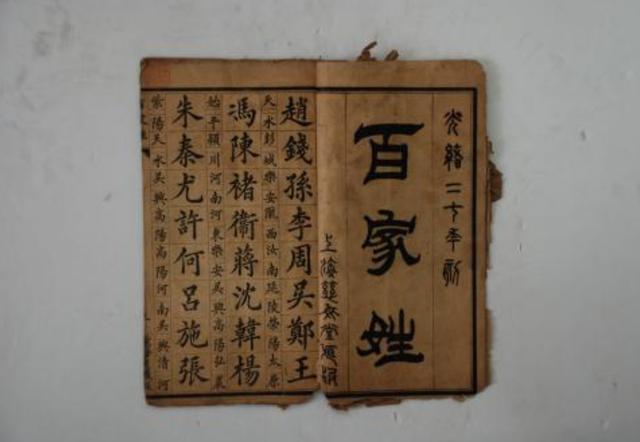 光緒二年刻
百家姓
上海堂
趙錢孫李周吳鄭王
天水彭城樂安隴西汝南延陵滎陽太原
馮陳褚衛蔣沈韓楊
始平潁川河南河東樂安吳興高陽弘農
朱秦尤許何呂施張
紫陽天水吳興高陽高陽河南吳興清河